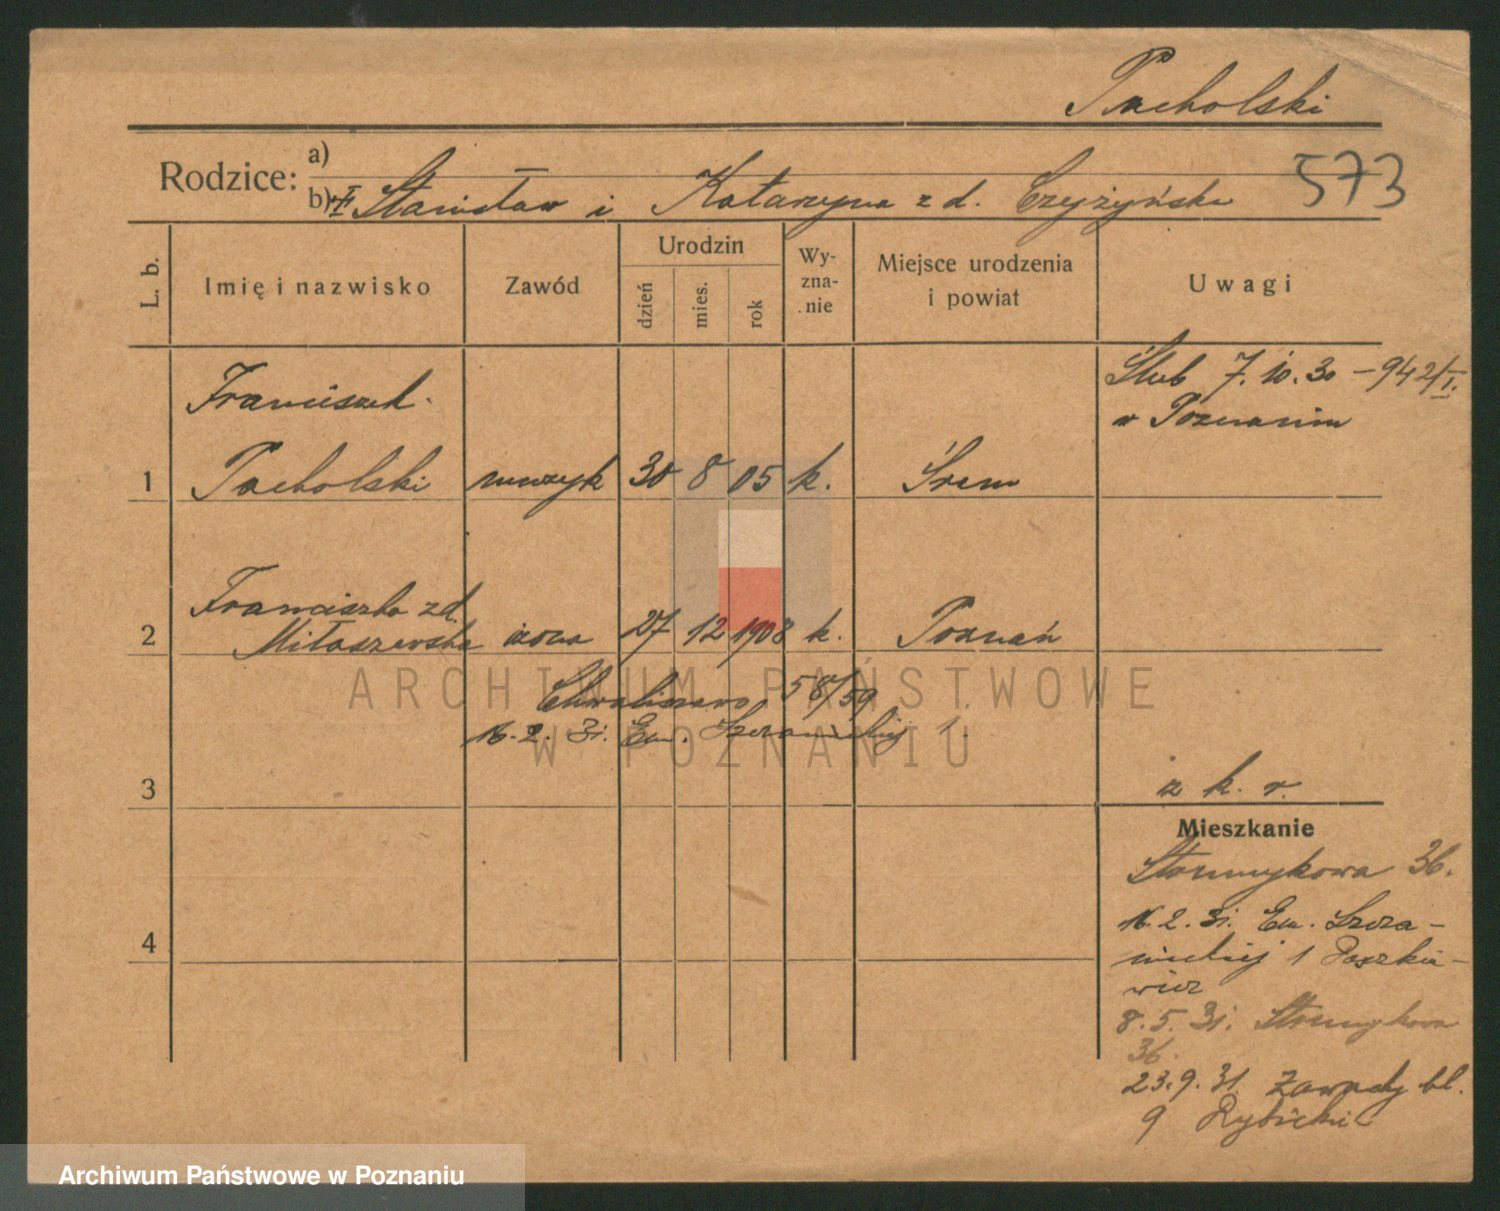 Pacholski
Rodzice: a)
b) Stanisław i Katarzyna z d. Czyżyńska 573
L. b. Imię i nazwisko Zawód Urodzin dzień mies. rok Wy-zna-nie Miejsce urodzenia i powiat Uwagi
Ślub 7.10.30 – 942/I.
w Poznaniu
Franciszek
1 Pacholski muzyk 30 8 05 k. Śrem
Franciszka z d.
2 Miłaszewska żona 27 12 1908 k. Poznań
Chwaliszewo 58/59
16.2.31. Em. Szczanieckiej 1.
3 z k. r.
Mieszkanie
Słomykowa 36.
16.2.31. Em. Szcza-
nieckiej 1 Paszkie-
wicz
8.5.31. Słomykowa
36.
4
23.9.31. Zawady bl.
9 Rybicki
ARCHIWUM PAŃSTWOWE
W POZNANIU
Archiwum Państwowe w Poznaniu